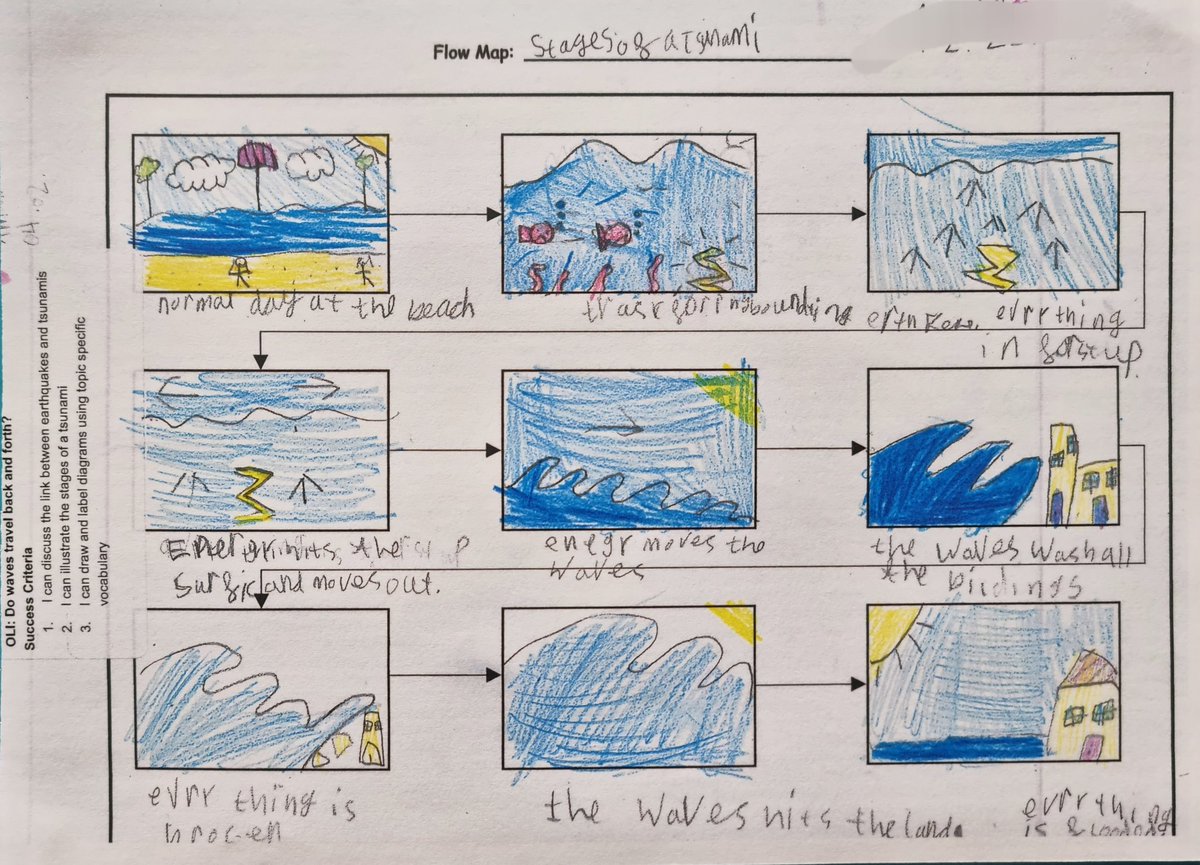 Flow Map: Stages of a Tsunami
OLI: Do waves travel back and forth?
Success Criteria
1. I can discuss the link between earthquakes and tsunamis
2. I can illustrate the stages of a tsunami
3. I can draw and label diagrams using topic specific
vocabulary
04.02.
normal day at the beach
evrrthing
in forst up.
Energr hits the
and moves out.
enegr moves the
waves
the waves wash all
the biidings
evrr thing is
brocen
the waves hits the land.
evrrthing
is